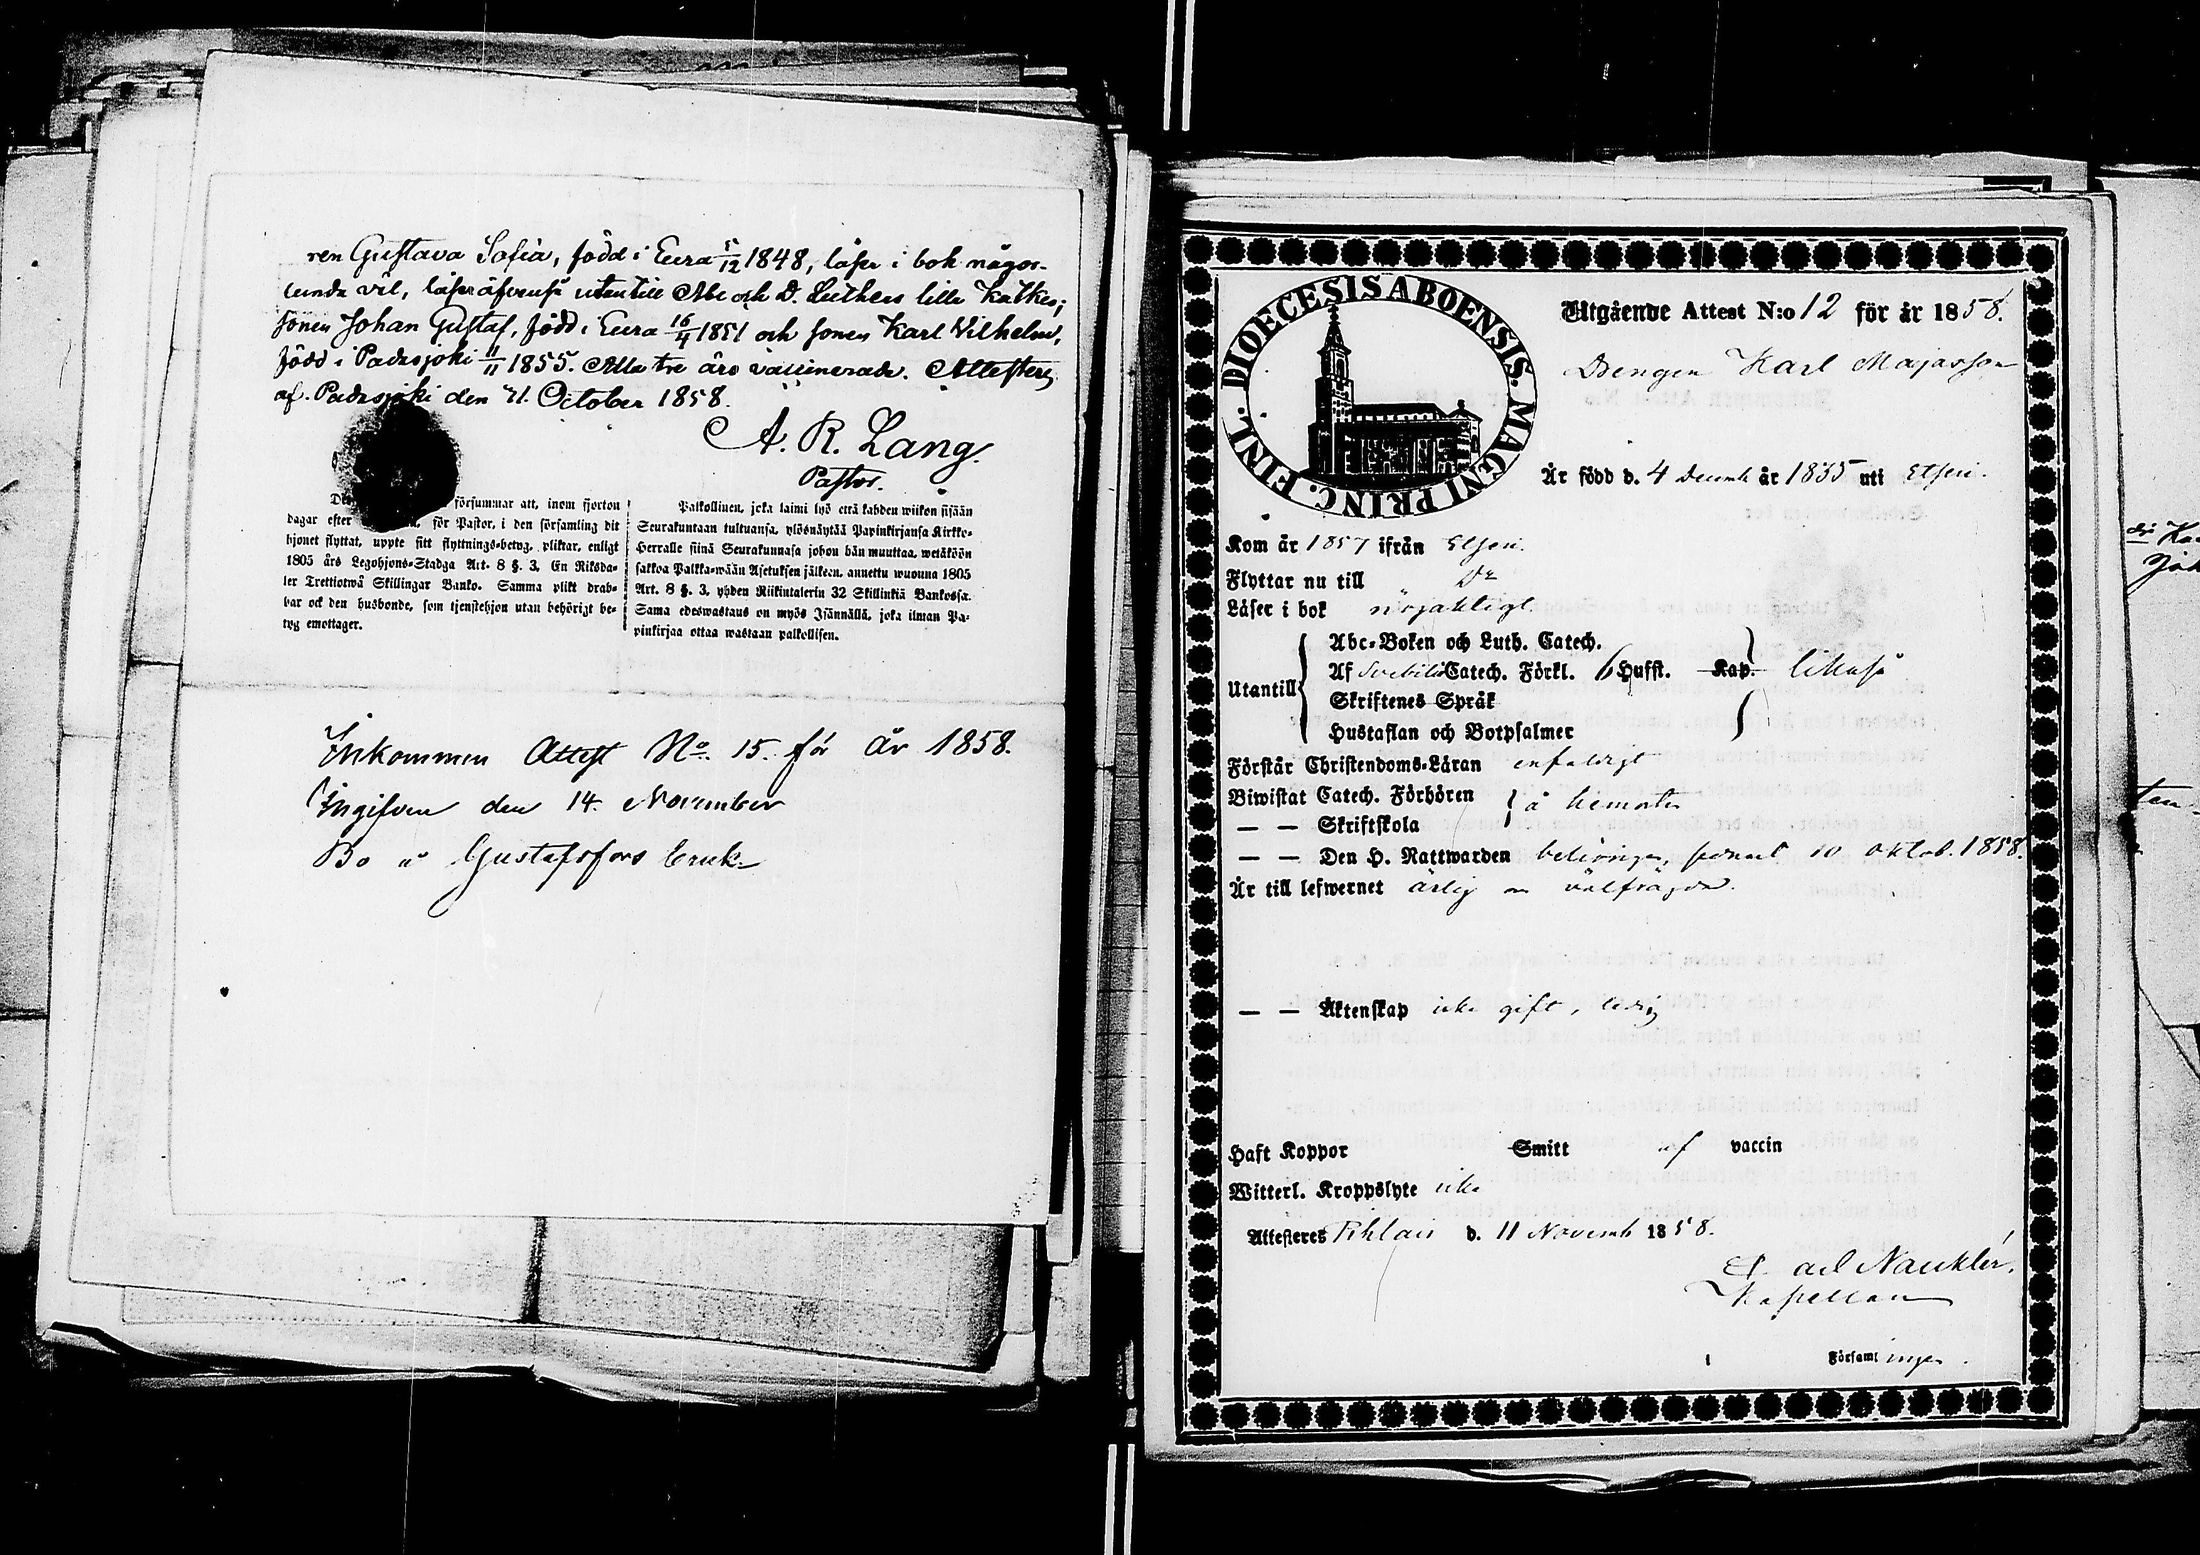 ren Gustava Sofia, född i Eura 5/12 1848, läser i bok någor-
lunda väl, läser äfvenså utantill Abc och D. Luthers lilla Katkes;
sonen Johan Gustaf, född i Eura 16/4 1851 och sonen Karl Vilhelm,
född i Padasjoki 11/11 1855. Alla tre äro vaccinerade. Attesteras
af. Padasjoki den 21. October 1858.
A. R. Lang.
Pastor.
försummar att, inom fjorton
dagar efter för Pastor, i den församling dit
hjonet flyttat, uppte sitt flyttnings-betyg, pliktar, enligt
1805 års Legohjons-Stadga Art. 8 §. 3. En Riksda-
ler Trettiotwå Skillingar Banko. Samma plikt drab-
bar ock den husbonde, som tjenstehjon utan behörigt be-
tyg emottager.
Palkollinen, joka laimi lyö että kahden wiikon sisään
Seurakuntaan tultuansa, ylösnäytää Papinkirjansa Kirkko-
Herralle siinä Seurakunnasa johon hän muuttaa, wetäköön
sakkoa Palkka-wään Asetuksen jälkeen, annettu wuonna 1805
Art. 8 §. 3, yhden Riikintalerin 32 Skillinkiä Bankossa.
Sama edeswastaus on myös Isännällä, joka ilman Pa-
pinkirjaa ottaa wastaan palkollisen.
Inkommen Attest No. 15. för år 1858.
Ingifven den 14. November
Bo å Gustafsfors bruk.
DIOECESIS ABOENSIS. MAGNI PRINC. FINL.
Utgående Attest N:o 12 för år 1858.
Drengen Karl Majasson
Är född d. 4 Decemb år 1835 uti Etseri.
Kom år 1857 ifrån Etseri.
Flyttar nu till Do
Läser i bok nöjaktigt.
Utantill
Abc-Boken och Luth. Catech.
Af Svebilii Catech. Förkl. 6 Hufst. Kap. likaså
Skriftenes Språk
Hustaflan och Botpsalmer
Förstår Christendoms-Läran enfaldigt
Biwistat Catech. Förhören å hemorten
— — Skriftskola
— — Den H. Nattwarden behörigen, senast 10 Oktob. 1858.
Är till lefwernet ärlig o välfrägdad.
— — Äktenskap icke gift, ledig
Haft Koppor Smitt af vaccin
Witterl. Kroppslyte icke
Attesteras d. 11 Novemb 1858.
Carl Nauklér.
Kapellan
Församl ingen.